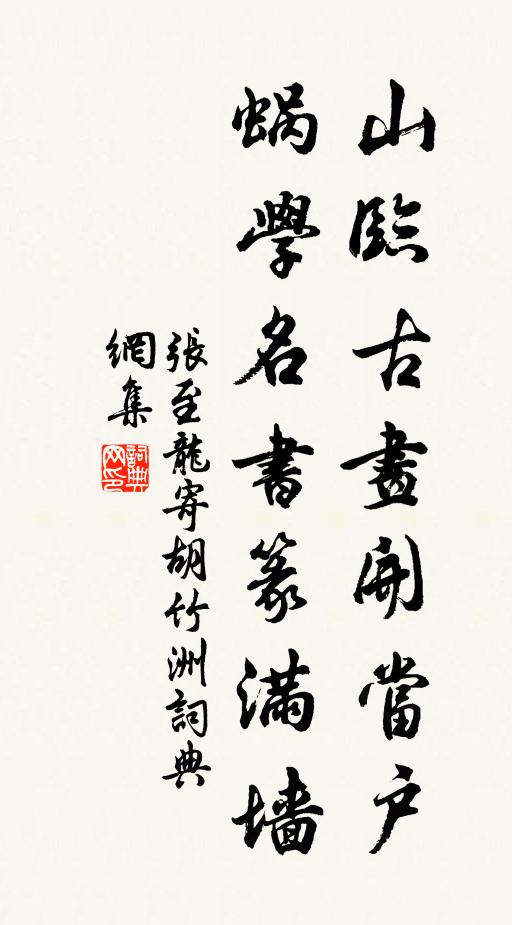 山臨古畫開當户
蝸學名書篆滿墻
張至龍寄胡竹洲詞典
網集
詞典
网印